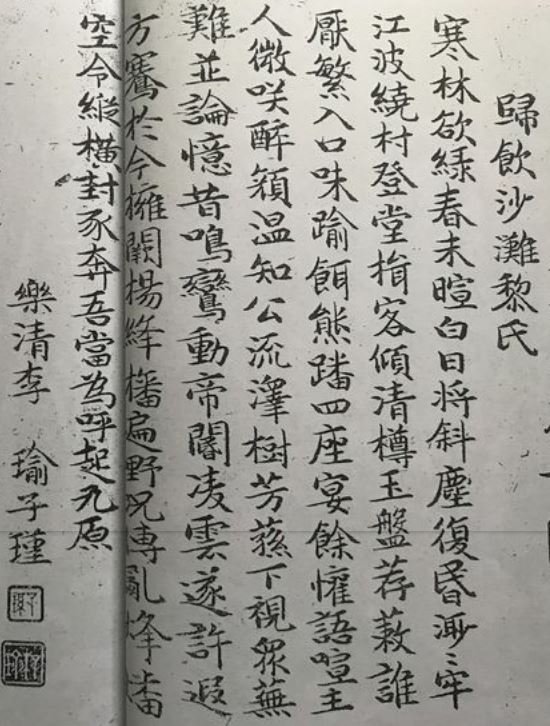 歸飲沙灘黎氏
寒林欲綠春未暄白日將斜塵復昏〻牢
江波繞村登堂揖客傾清樽玉盤荐蔌誰
厭繁入口味踰餌熊蹯四座宴餘懽語喧主
人微咲醉溫知公流澤樹芳蓀下視眾蕪
難並論憶昔鳴鸞動帝閽凌雲遂許遐
方騫於今擁闕揚絳旛野况傳亂烽番
空令縱橫封豕奔吾當為呼起九原
樂清李 瑜子瑾